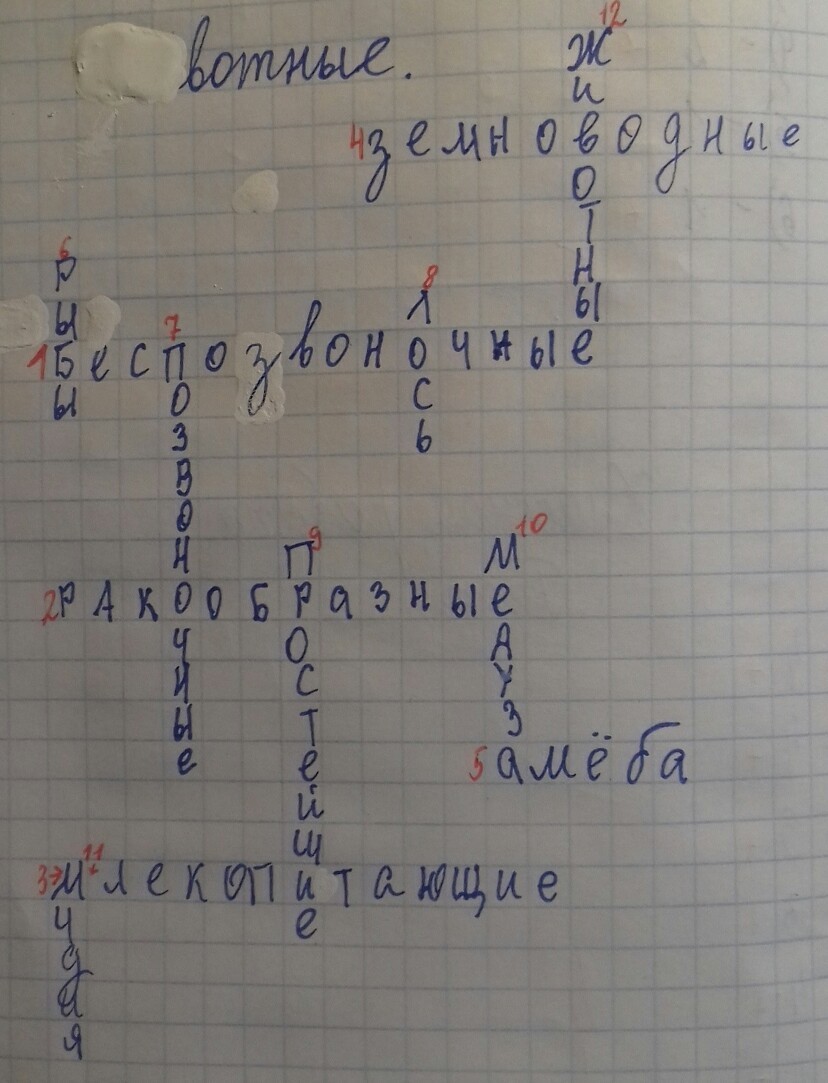 вотные.
12 Животные
4 земноводные
6 Рыбы
8 Лось
7 Позвоночные
1 Беспозвоночные
9 Простейшие
10 Медуза
2 РАКООБРазные
5 амёба
3→ Млекопитающие
11 Мидия